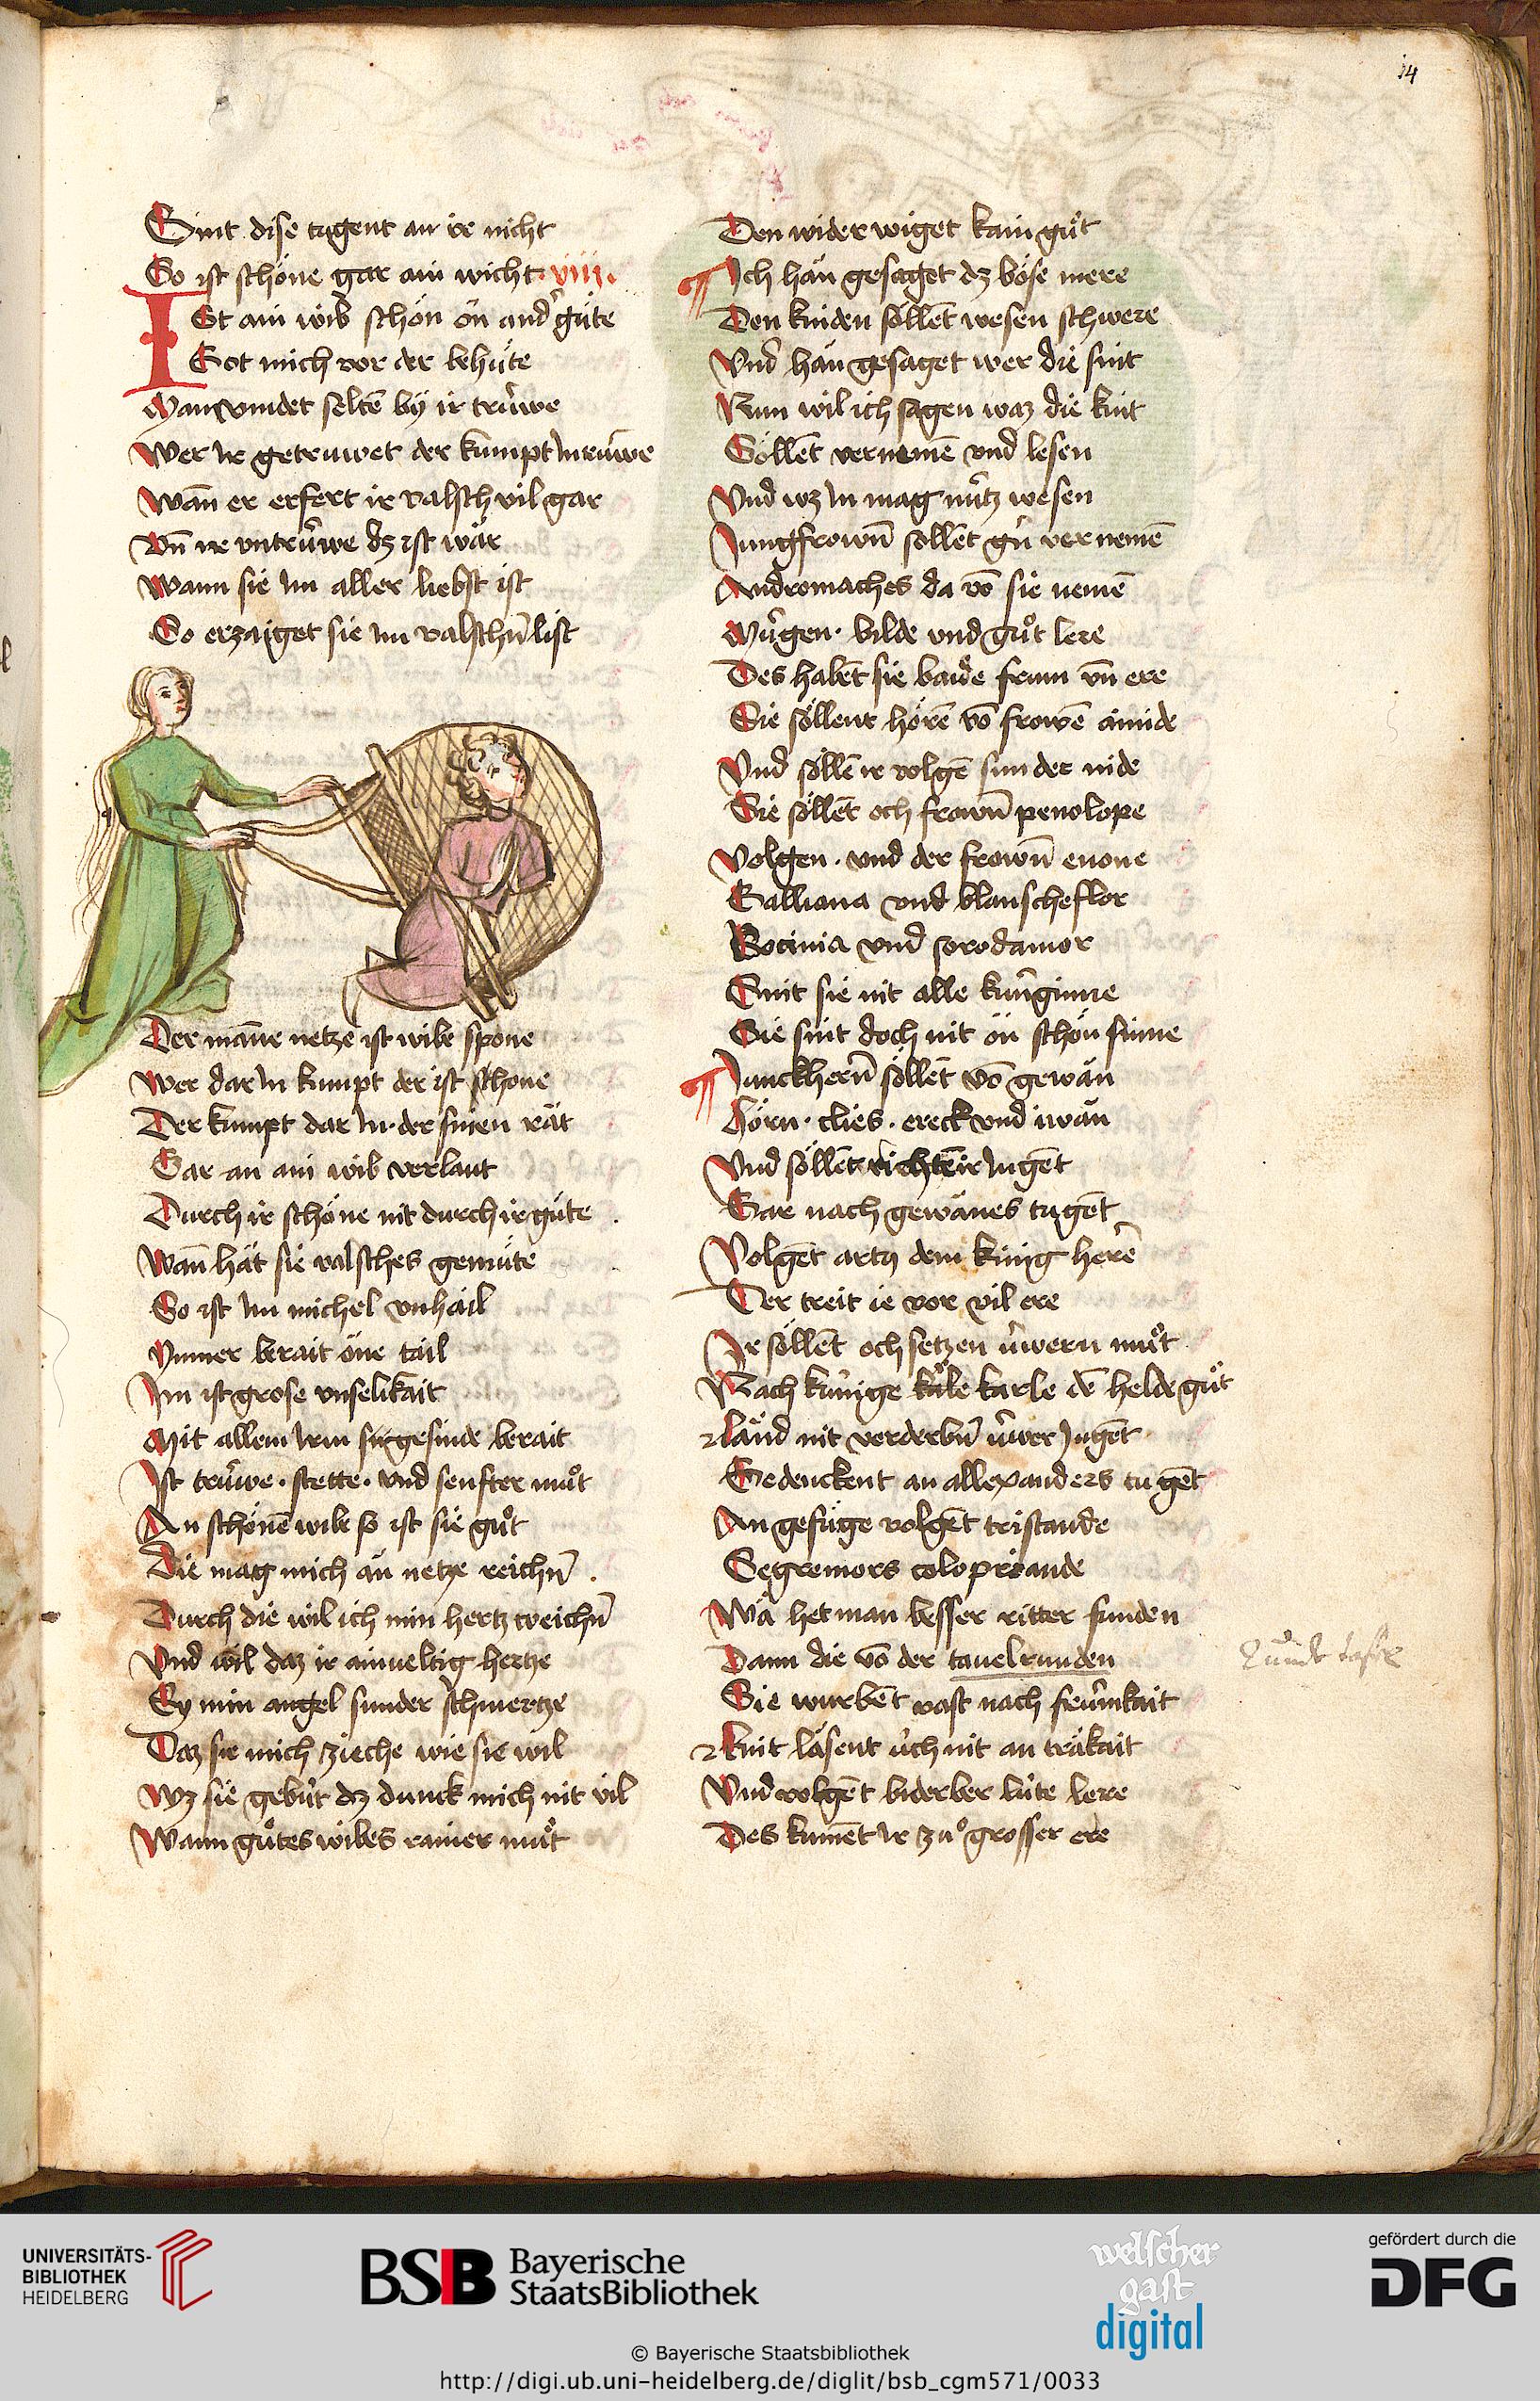 14
Sint dise tugent an ir nicht
So ist schöne gar ain wicht · viiij ·
ISt ain wib schön on and͛ güte
Got mich vor der behüte
Man vindet seltē bÿ ir trüwe
Wer ir getruwet der kumpt in rüwe
Wañ er erfert ir valsch vil gar
Vn̄ ir vntrüwe dz ist wär
Wann sie im aller liebst ist
So erzaiget sie im valschn̄ list
Der man̄e netze ist wibe schone
Wer dar in kumpt der ist schone
Der kumpt dar in · der sinen rät
Gar an ain wib verlaut
Durch ir schöne nit durch ir güte
Wañ hät sie valsches gemüte
So ist im michel vnhail
Ymmer berait öne tail
Im ist grose vnselikait
Mit allem irm gesinde berait
Ist trüwe · stette · vnd senfter muͦt
An schönē wibe so ist sie guͦt
Die mag mich än netze reichn̄ .
Durch die wil ich min hertz weichn̄
Vnd wil daz ir ainueltig hertze
Sy min angel sunder schmertze
Daz sie mich zieche wie sie wil
Wz sie gebüt dz dunck mich nit vil
Wann guͦtes wibes rainer muͦt
Den wider wiget kain guͦt
Ich hän gesaget dz böse mere
Den kinden söllēt wesen schwere
Vnd hän gesaget wer die sint
Nun wil ich sagen waz die kint
Söllēt vernemē vnd lesen
Vnd wz in mag nütz wesen
Jungfrown̄ söllēt gn̄ vernemē
Andromaches da vō sie nemē
Mügen · bilde vnd guͦt lere
Des habēt sie baide frum vn̄ ere
Sie söllent hörē vō frowē ainide
Vnd söllē ir volgē sunder nide
Sie söllēt och frown̄ penolope
Volgen · vnd der frown̄ enone
Galliana vnd blanscheflor
Botinia vnd sorodamor
Sint sie nit alle künginne
Sie sint doch nit ön schön sinne
Junckhern̄ söllēt vō gewän
Hörn · clies · ereck vnd iwän
Vnd söllēt richtē ir iugēt
Gar nach gewänes tugēt
Volgēt artꝰ dem küng herē
Der treit ie vor vil ere
Ir söllēt och setzen üwern muͦt
Nach künige karle dē helde guͦt
länd nit verderbn̄ üwer iugēt
Gedenckent an allexanders tugēt
An gefüge volgēt tristande
Segremors coloprïande
Wä het man besser ritter funden
Dann die vō der tauelrunden
Sie wurbēt vast nach frümkait
kint läsent üch nit an träkait
Vnd volgēt biderber lüte lere
Des kumēt ir zuͦ grosser ere
UNIVERSITÄTS-
BIBLIOTHEK
HEIDELBERG
BSB Bayerische
StaatsBibliothek
welscher
gast
digital
gefördert durch die
DFG
© Bayerische Staatsbibliothek
http://digi.ub.uni-heidelberg.de/diglit/bsb_cgm571/0033